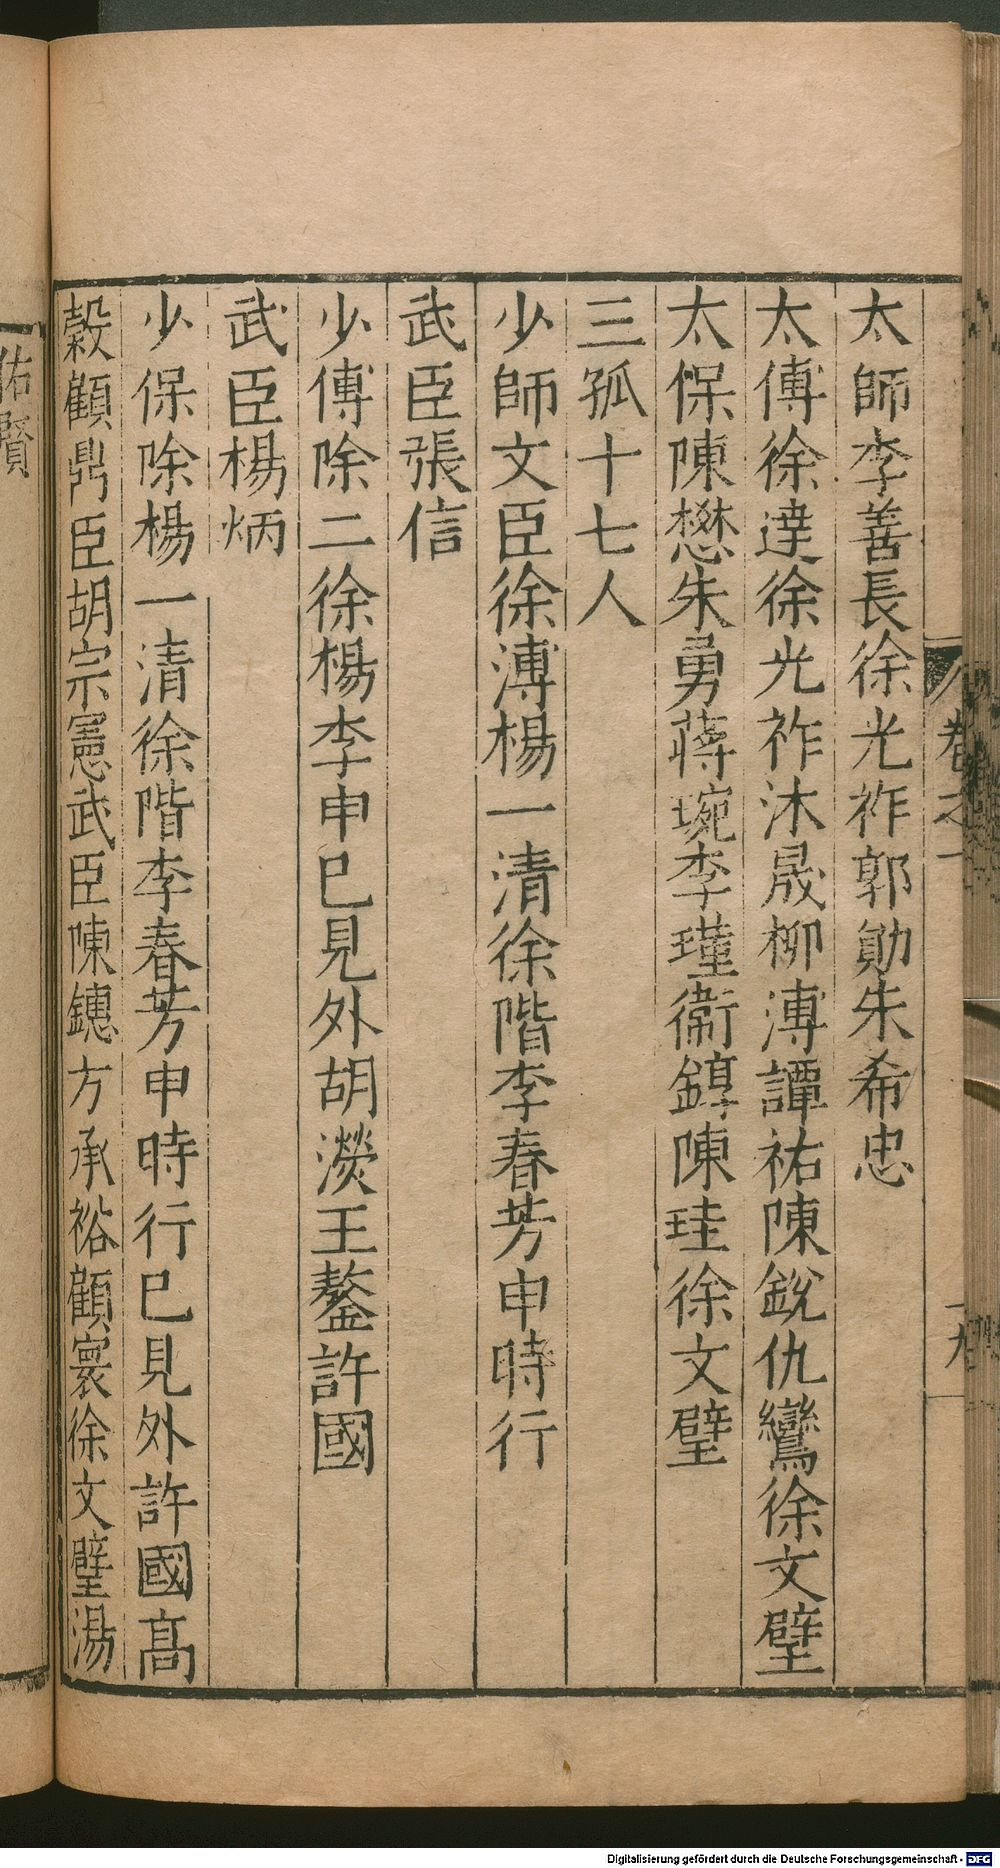 太師李善長徐光祚郭勛朱希忠
太傅徐達徐光祚沐晟柳溥譚祐陳銳仇鸞徐文璧
太保陳懋朱勇蔣琬李瑾衞錞陳珪徐文璧
三孤十七人
少師文臣徐溥楊一清徐階李春芳申時行
武臣張信
少傅除二徐楊李申已見外胡濙王鏊許國
武臣楊炳
少保除楊一清徐階李春芳申時行已見外許國高
穀顧鼎臣胡宗憲武臣陳鏸方承裕顧寰徐文璧湯
卷之一
十九
佑賢
Digitalisierung gefördert durch die Deutsche Forschungsgemeinschaft - DFG